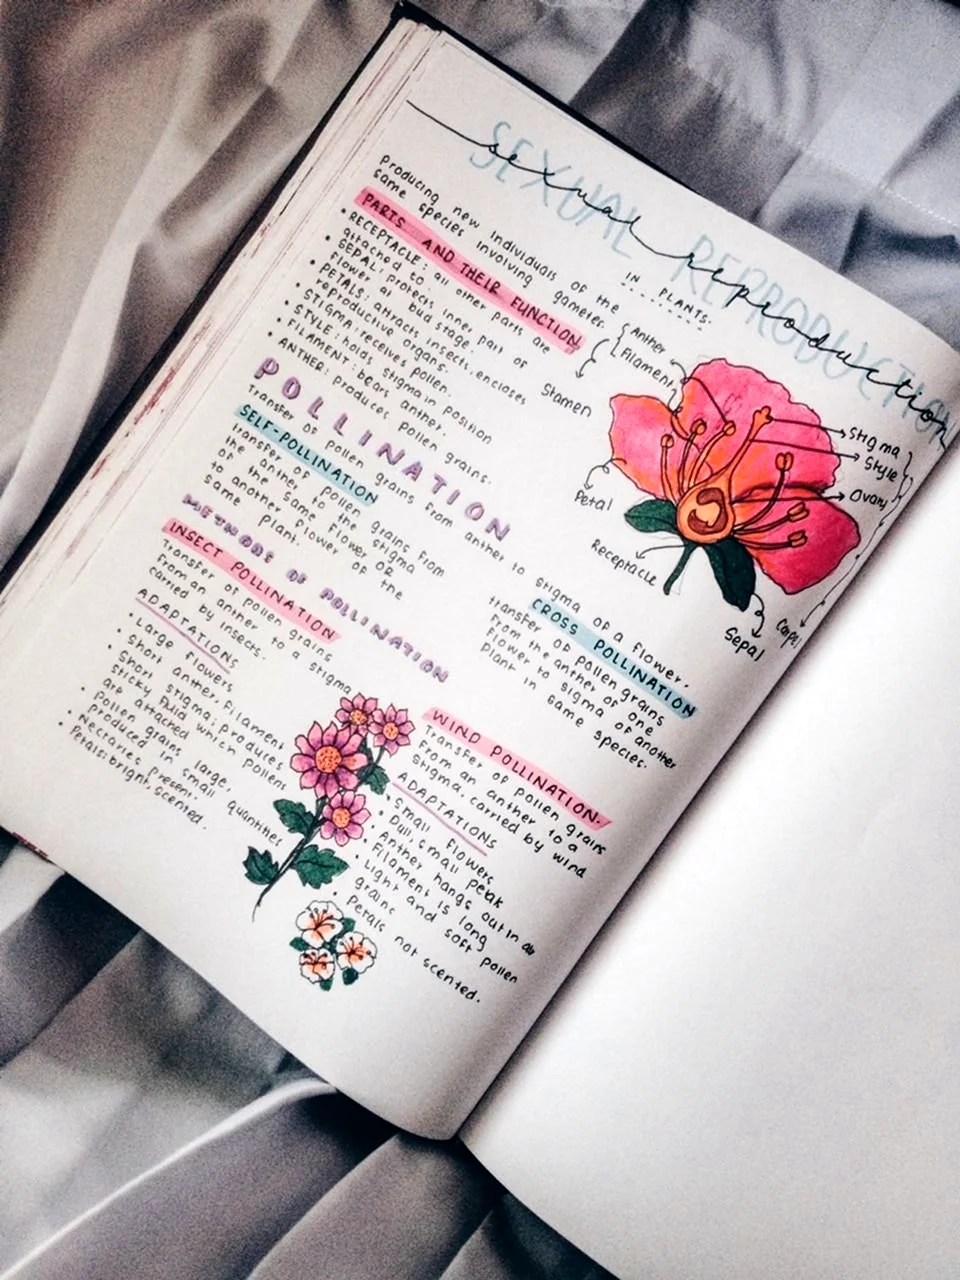 SEXUAL REPRODUCTION
sexual reproduction
IN PLANTS.
Producing new individuals of the
same species involving gametes.
PARTS AND THEIR FUNCTION
• RECEPTACLE: all other parts are
attached to.
• SEPAL: protects inner part of
flower at bud stage.
• PETALS: attracts insect, encloses
reproductive organs.
• STIGMA: receives pollen.
• STYLE: holds stigma in position
• FILAMENT: bears anther.
• ANTHER: produces pollen grains.
Anther
Filament
Stamen
Petal
Receptacle
Stigma
Style
Ovary
Carpel
Sepal
POLLINATION
Transfer of pollen grains from anther to stigma of a flower.
SELF-POLLINATION
transfer of pollen grains from
the anther to the stigma
of the same flower OR
to another flower of the
same plant.
CROSS POLLINATION
transfer of pollen grains
from the anther of one
flower to sigma of another
plant in same species.
METHODS OF POLLINATION
INSECT POLLINATION
Transfer of pollen grains
from an anther to a stigma
carried by insects.
ADAPTATIONS
• Large flowers
• Short anther, filament
• Short stigma; produces
sticky fluid which pollens
are attached
• Pollen grains large,
produced in small quantities
• Nectaries present.
• Petals: bright, scented.
WIND POLLINATION.
Transfer of pollen grains
from an anther to a
stigma, carried by wind
ADAPTATIONS
• Small flowers
• Dull, small petals
• Anther hangs out in air
• Filament is long
• Light and soft pollen
grains
• Petals not scented.